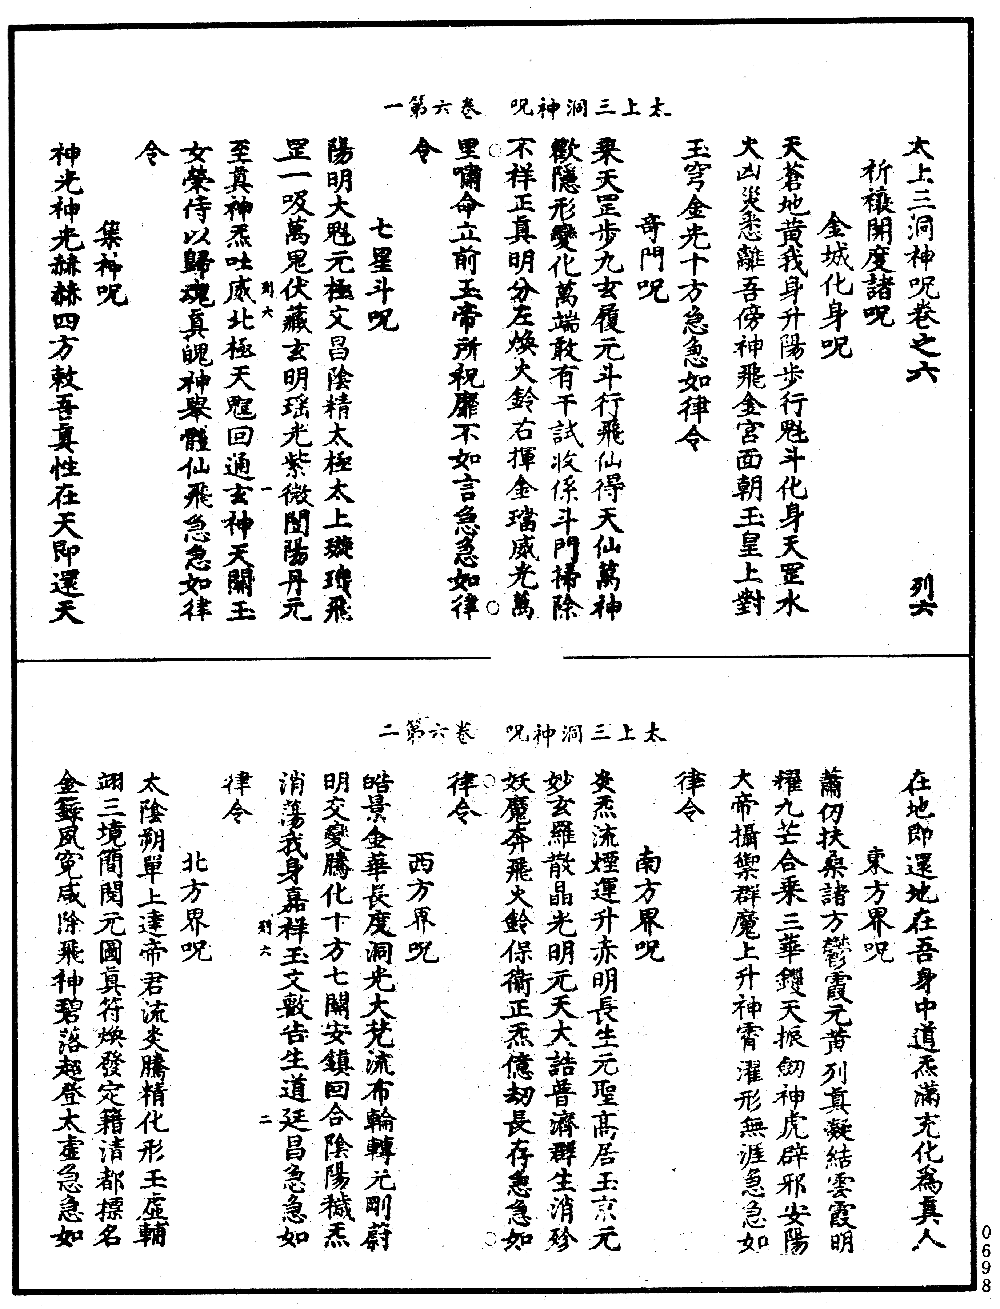 太上三洞神呪　卷六第一
太上三洞神呪卷之六　列六
祈禳開度諸呪
金城化身呪
天蒼地黃我身升陽步行魁斗化身天罡水
火凶災悉離吾傍神飛金宮面朝玉皇上對
玉穹金光十方急急如律令
奇門呪
乘天罡步九玄履元斗行飛仙得天仙萬神
歡隱形變化萬端敢有干試收係斗門掃除
不祥正真明分左煥火鈴右揮金璫威光萬
里嘯命立前玉帝所祝靡不如言急急如律
令
七星斗呪
陽明大魁元極文昌陰精太極太上璇璣飛
罡一吸萬鬼伏藏玄明瑶光紫微闓陽丹元
列六　一
至真神炁吐威北極天魁回通玄神天關玉
女榮侍以歸魂真魄神舉體仙飛急急如律
令
集神呪
神光神光赫赫四方敕吾真性在天即還天
太上三洞神呪　卷六第二
在地即還地在吾身中道炁滿充化為真人
東方界呪
蕭仞扶桑諸方鬱霞元黃列真凝結雲霞明
耀九芒合乘三華鑁天振劒神虎辟邪安陽
大帝攝禦群魔上升神霄濯形無涯急急如
律令
南方界呪
炎炁流煙運升赤明長生元聖高居玉京元
妙玄羅散晶光明元天大誥普濟群生消殄
妖魔奔飛火鈴保衛正炁億劫長存急急如
律令
西方界呪
皓景金華長度洞光大梵流布輪轉元剛蔚
明交變騰化十方七關安鎮回合陰陽穢炁
消蕩我身嘉祥玉文敷告生道廷昌急急如
列六　二
律令
北方界呪
太陰朔單上達帝君流炎騰精化形玉虛輔
翊三境簡閱元圖真符煥發定籍清都標名
金籙夙冤咸除飛神碧落超登太虛急急如
0698